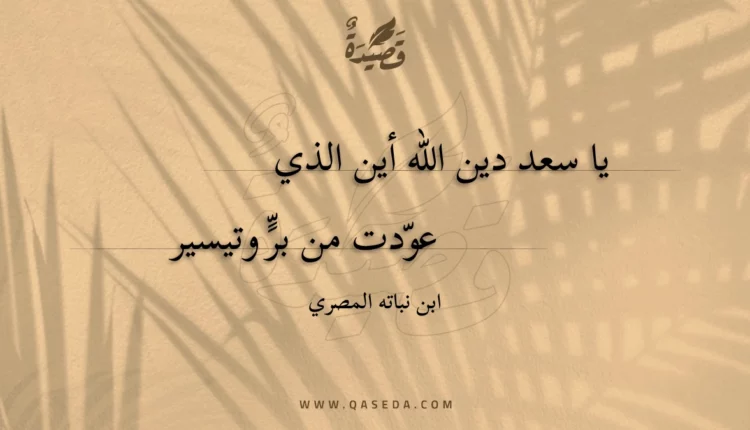 قَصِيْدَةٌ
يا سعد دين الله أين الذي
عوّدت من برٍّ وتيسير
ابن نباته المصري
WWW.QASEDA.COM